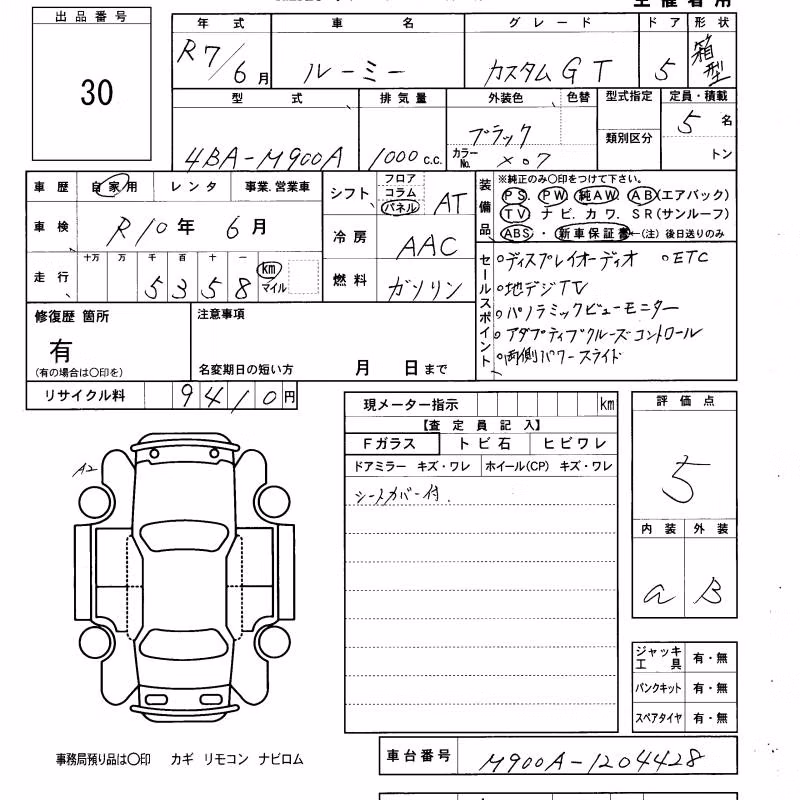 主催者用
出品番号
30
年式 車名 グレード ドア 形状
R7/6月 ルーミー カスタムGT 5 箱型
型式 排気量 外装色 色替 型式指定 定員・積載
4BA-M900A 1000c.c. ブラック 類別区分 5名
カラーNo. X07 トン
車歴 自家用 レンタ 事業.営業車
車検 R10年 6月
走行 十万 万 千 百 十 一
5358 km マイル
シフト フロア コラム パネル AT
冷房 AAC
燃料 ガソリン
装備品 ※純正のみ〇印をつけて下さい。
PS. PW. 純AW. AB(エアバック)
TV ナビ. カワ. SR(サンルーフ)
ABS・新車保証書←(注)後日送りのみ
セールスポイント
ディスプレイオーディオ ETC
地デジTV
パノラミックビューモニター
アダプティブクルーズコントロール
両側パワースライド
修復歴 箇所
有
(有の場合は〇印を)
注意事項
名変期日の短い方 月 日まで
リサイクル料 9410円
現メーター指示 km
【査定員記入】
Fガラス トビ石 ヒビワレ
ドアミラー キズ・ワレ ホイール(CP) キズ・ワレ
シートカバー付.
評価点
5
内装 外装
a B
A2
ジャッキ工具 有・無
パンクキット 有・無
スペアタイヤ 有・無
事務局預り品は〇印 カギ リモコン ナビロム
車台番号 M900A-1204428